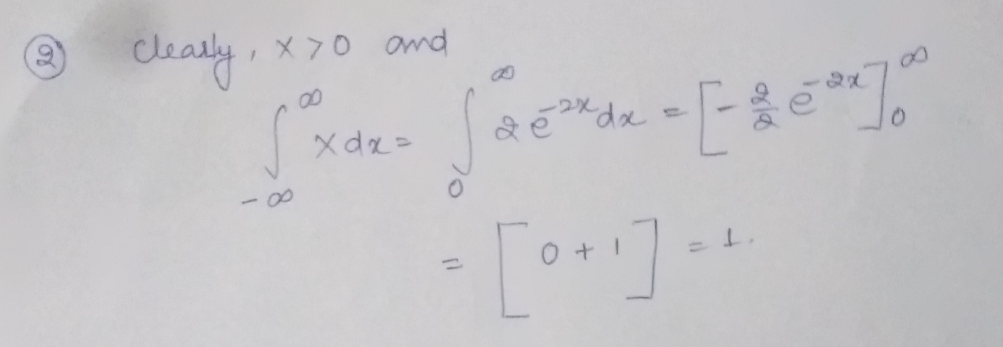 ② Clearly, x > 0 and
∫_{-∞}^{∞} x dx = ∫_{0}^{∞} 2 e^{-2x} dx = [ - 2/2 e^{-2x} ]_{0}^{∞}
= [ 0 + 1 ] = 1.